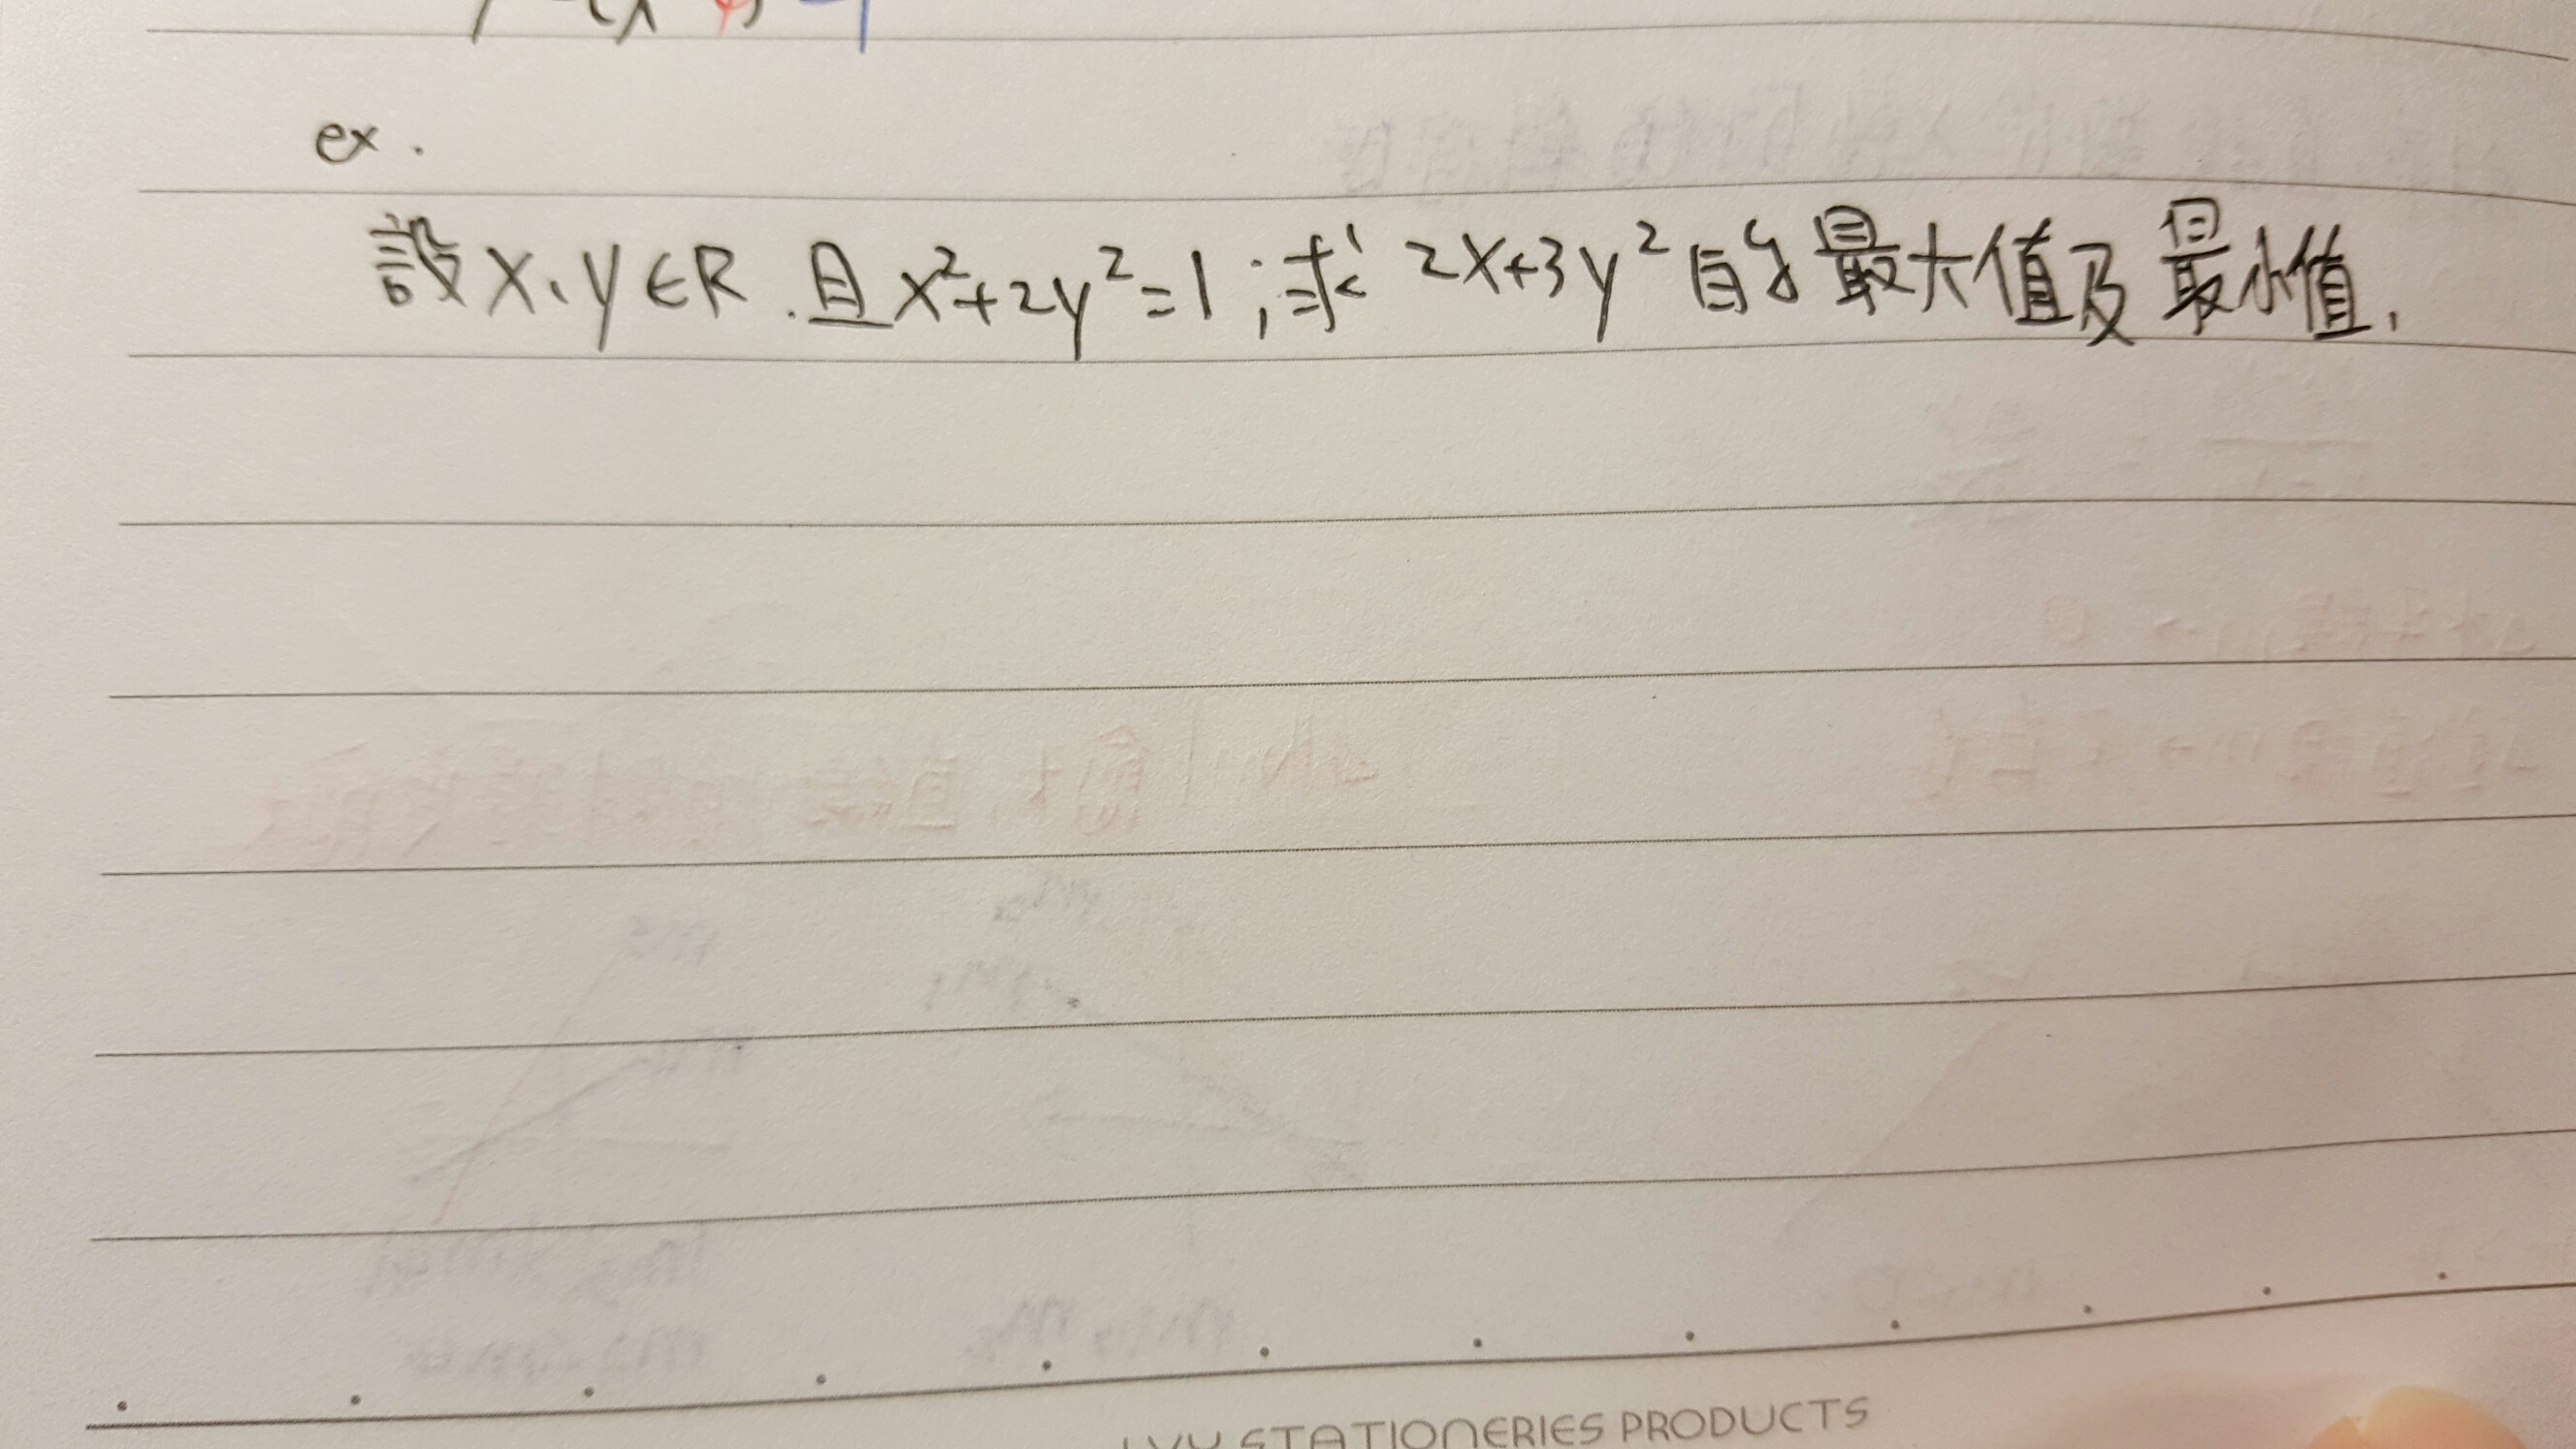 ex.
設x、y∈R.且x²+2y²=1;求2x+3y²的最大值及最小值.
STATIONERIES PRODUCTS